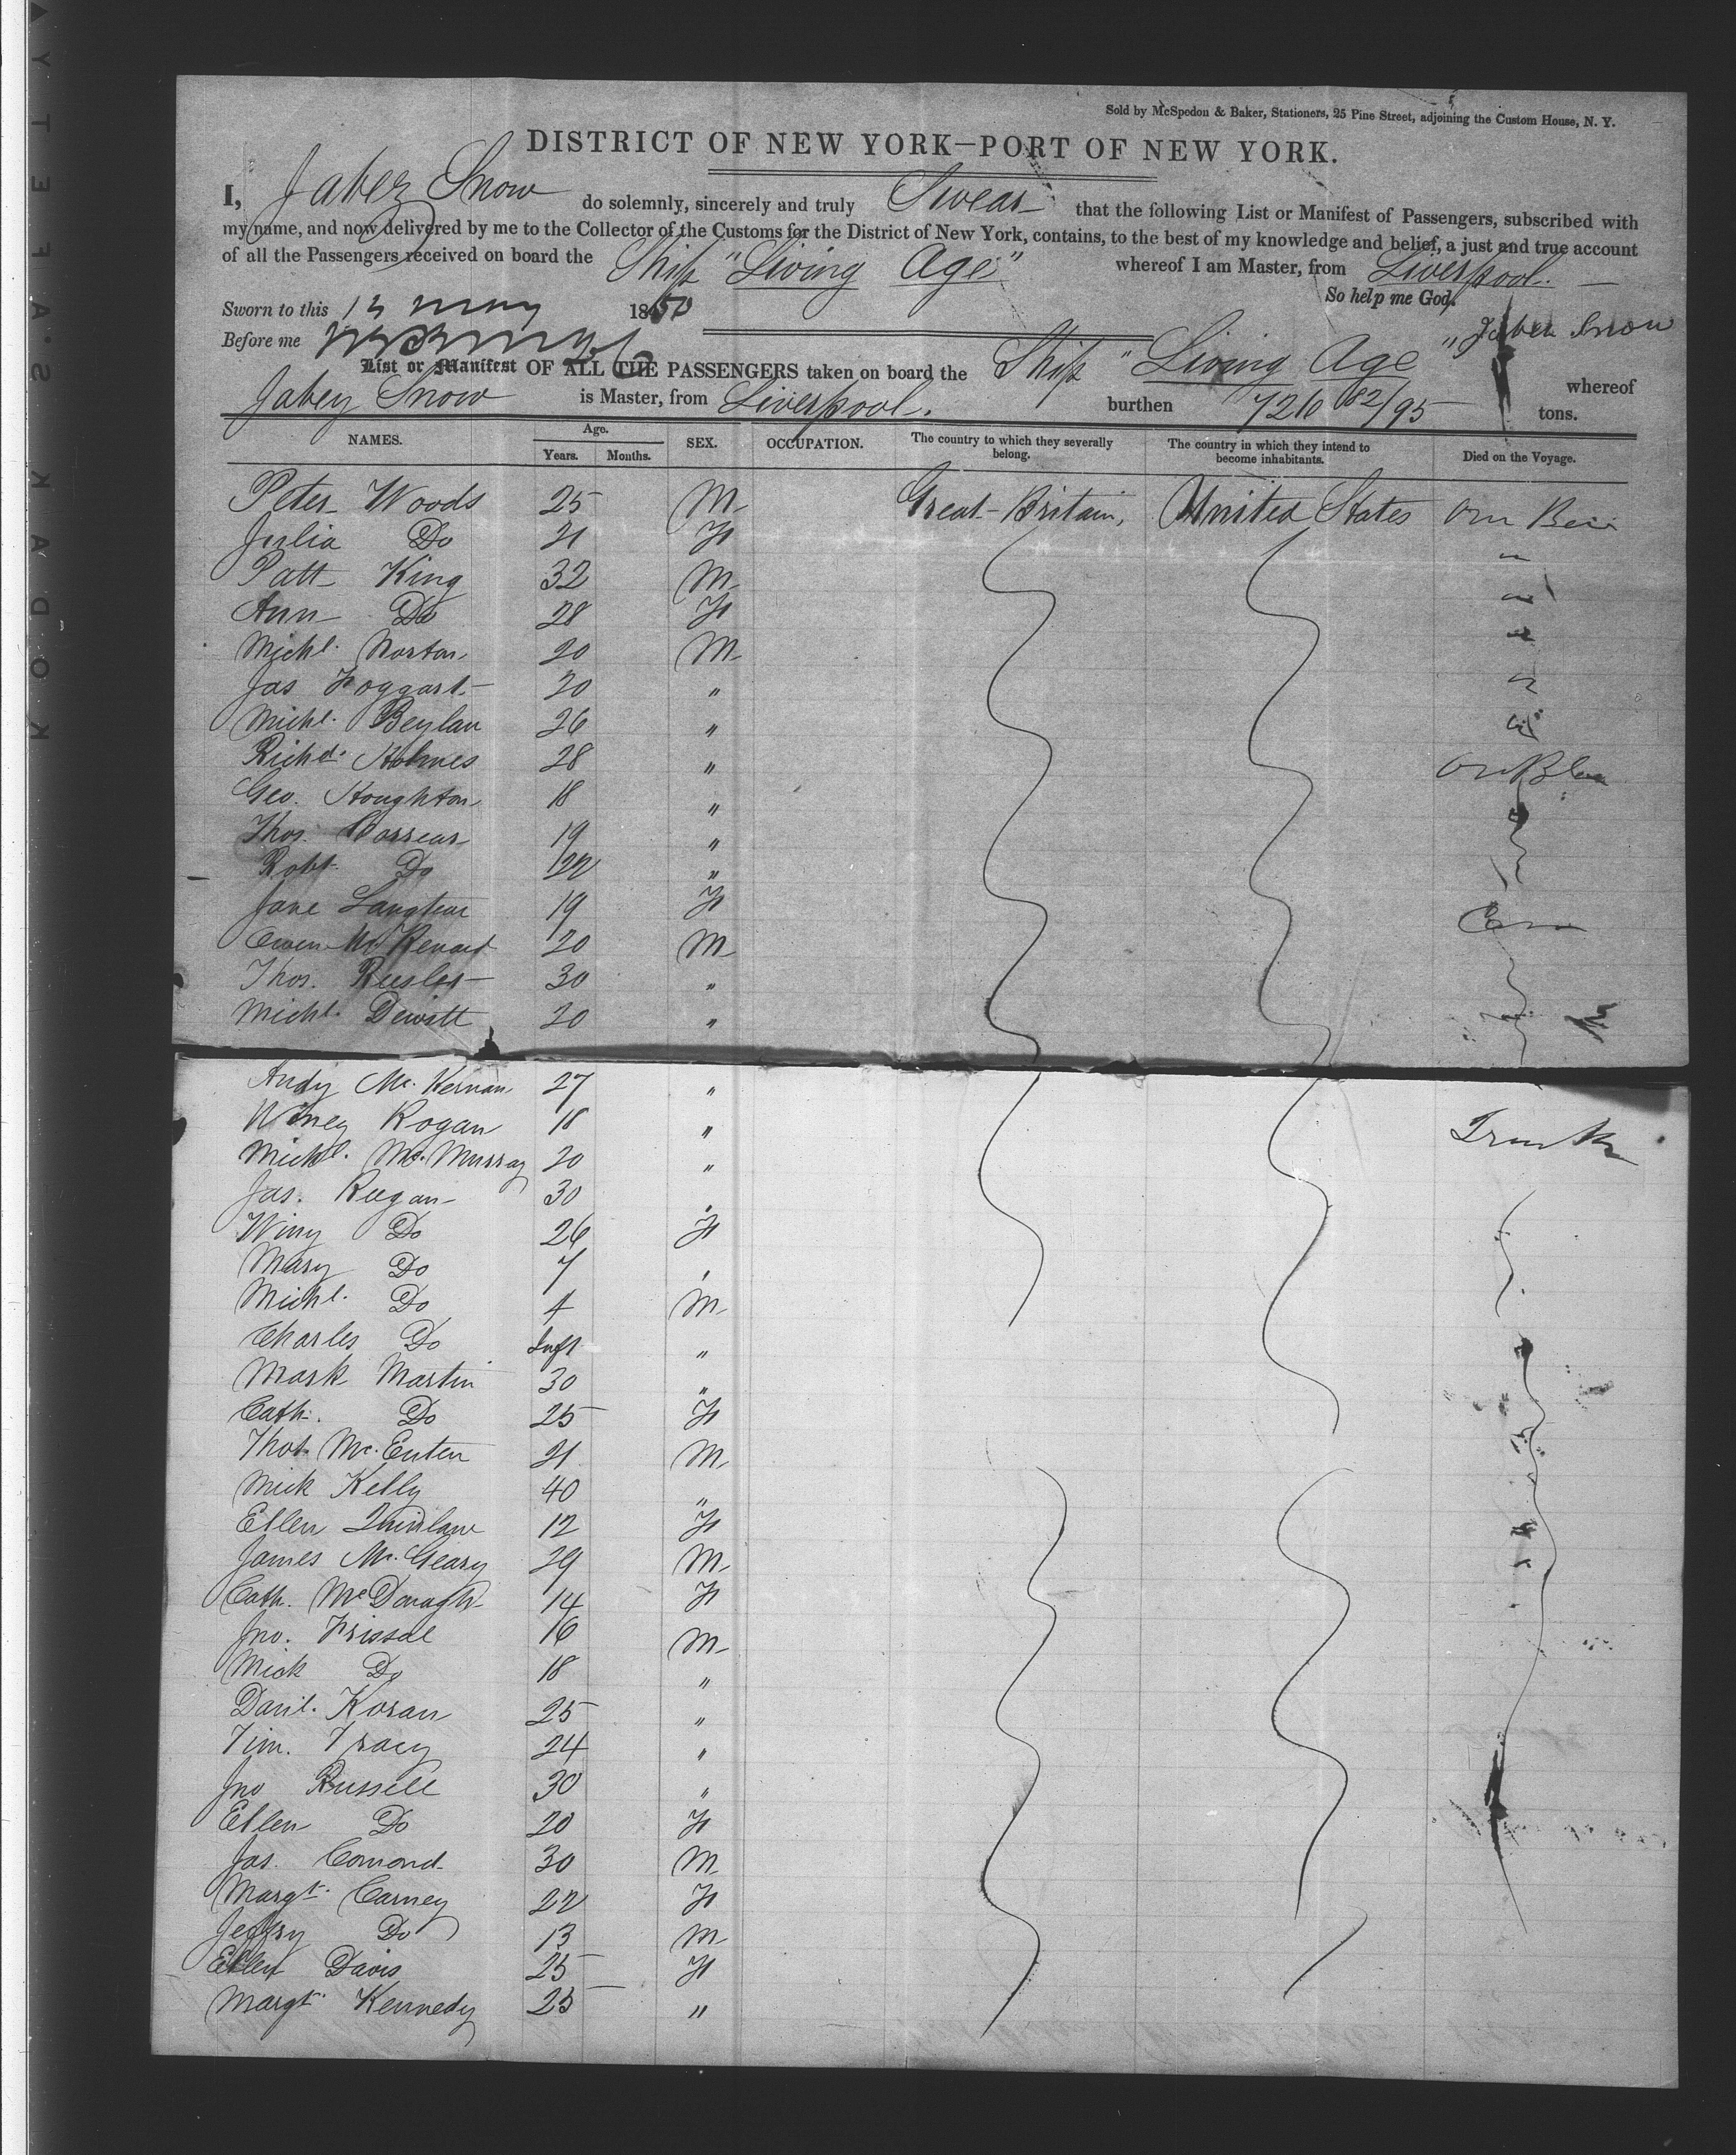 KODAK·SAFETY
Sold by McSpedon & Baker, Stationers, 25 Pine Street, adjoining the Custom House, N. Y.
DISTRICT OF NEW YORK—PORT OF NEW YORK.
I, Jabez Snow do solemnly, sincerely and truly Swear that the following List or Manifest of Passengers, subscribed with
my name, and now delivered by me to the Collector of the Customs for the District of New York, contains, to the best of my knowledge and belief, a just and true account
of all the Passengers received on board the Ship "Living Age" whereof I am Master, from Liverpool.
So help me God,
Sworn to this 13 May 1850 Jabez Snow
Before me
List or Manifest OF ALL THE PASSENGERS taken on board the Ship "Living Age" whereof
Jabez Snow is Master, from Liverpool. burthen 726 82/95 tons.
NAMES. Age. Years. Months. SEX. OCCUPATION. The country to which they severally belong. The country in which they intend to become inhabitants. Died on the Voyage.
Peter Woods 25 M Great Britain, United States
Julia Do 21 F
Patt King 32 M
Ann Do 28 F
Michl. Norton 20 M
Jas Foggart 20 "
Michl. Beylan 26 "
Richd. Holmes 28 "
Geo. Houghton 18 "
Thos. 19 "
Robt Do 22 "
Jane 19 F
Owen Mc 20 M
Thos. 30 "
Michl. Dewitt 20 "
Andy Mc. Kernan 27 "
Rogan 18 "
Michl. Mc. Murray 20 "
Jas. Regan 30 "
Winy Do 26 F
Mary Do 7 "
Michl. Do 4 M
Charles Do Inft "
Mark Martin 30 "
Cath. Do 25 F
Thos. Mc. Enten 21 M
Mick Kelly 40 "
Ellen Quinlane 12 F
James Mc. Geary 29 M
Cath. McDonagh 14 F
Jno. Frissal 16 M
Mick Do 18 "
Danl. Horan 25 "
Tim. Tracy 24 "
Jno Russell 30 "
Ellen Do 20 F
Jas. Comond 30 M
Margt. Carney 22 F
Do 13 M
Ellen Davis 25 F
Margt. Kennedy 25 "